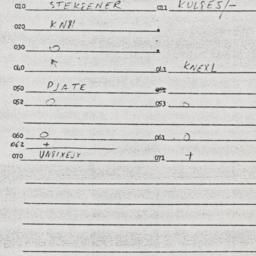 010 STEKSENER 011 KULSES/-
020 KNB!
030 O
040 041 KNEXL
050 PJATE 052
052 O 053 O
060 O 061 O
062 +
070 071 +